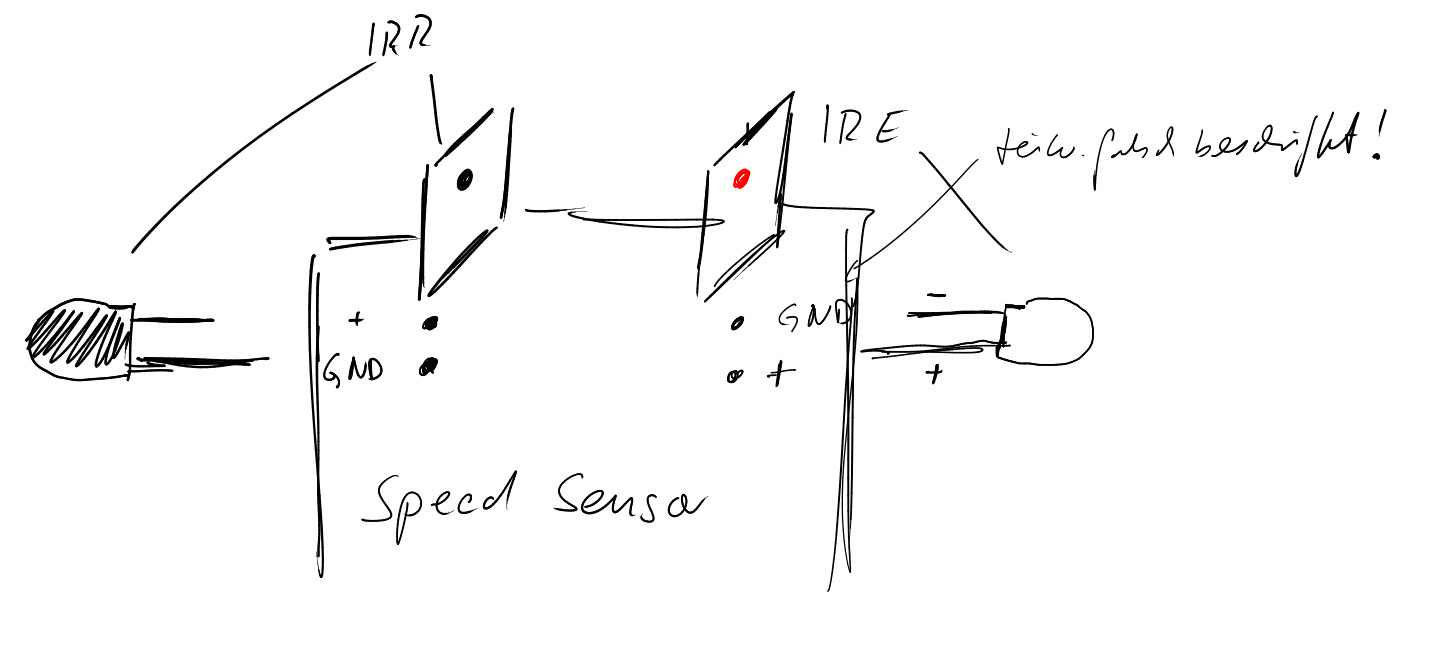 IRR
IRE
teilw. falsch beschriftet!
+
GND
GND
+
-
+
Speed Sensor